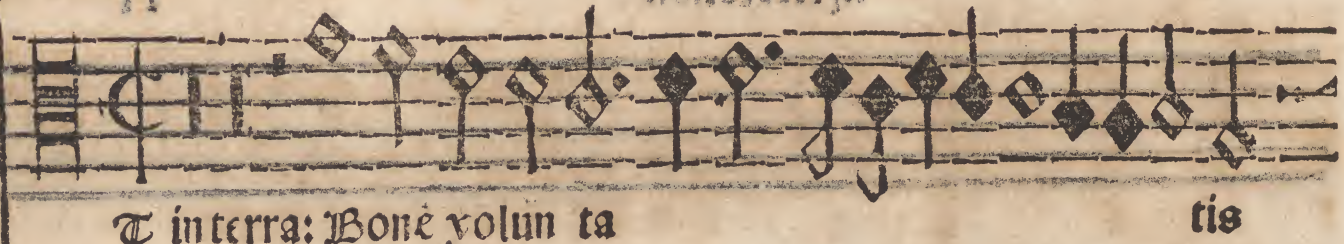 T in terra: Bone volun ta tis